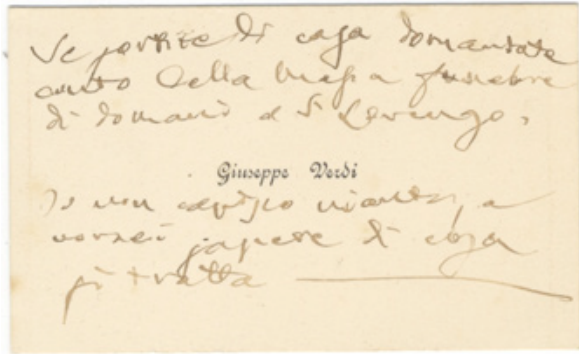 Se sortite di casa domandate
conto della Messa funebre
di domani a S. Lorenzo.
Giuseppe Verdi
Io non capisco niente, e
vorrei sapere di cosa
si tratta